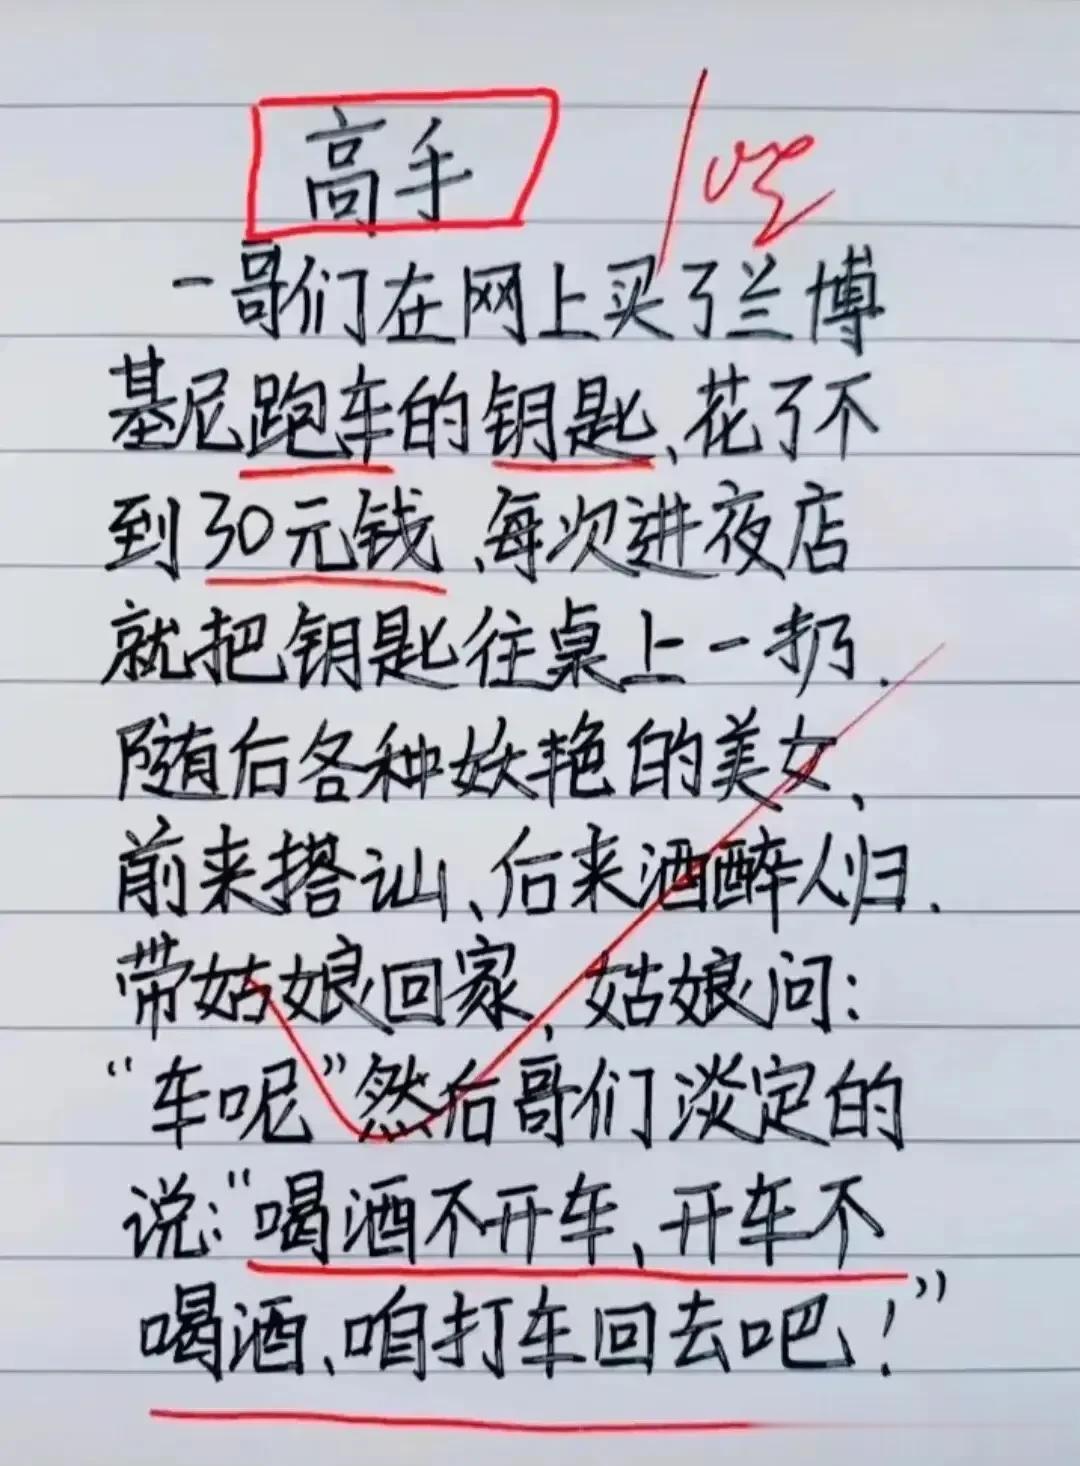 高手
一哥们在网上买了兰博
基尼跑车的钥匙、花了不
到30元钱、每次进夜店
就把钥匙往桌上一扔.
随后各种妖艳的美女、
前来搭讪、后来酒醉人归.
带姑娘回家、姑娘问：
“车呢”然后哥们淡定的
说：“喝酒不开车、开车不
喝酒、咱打车回去吧！”